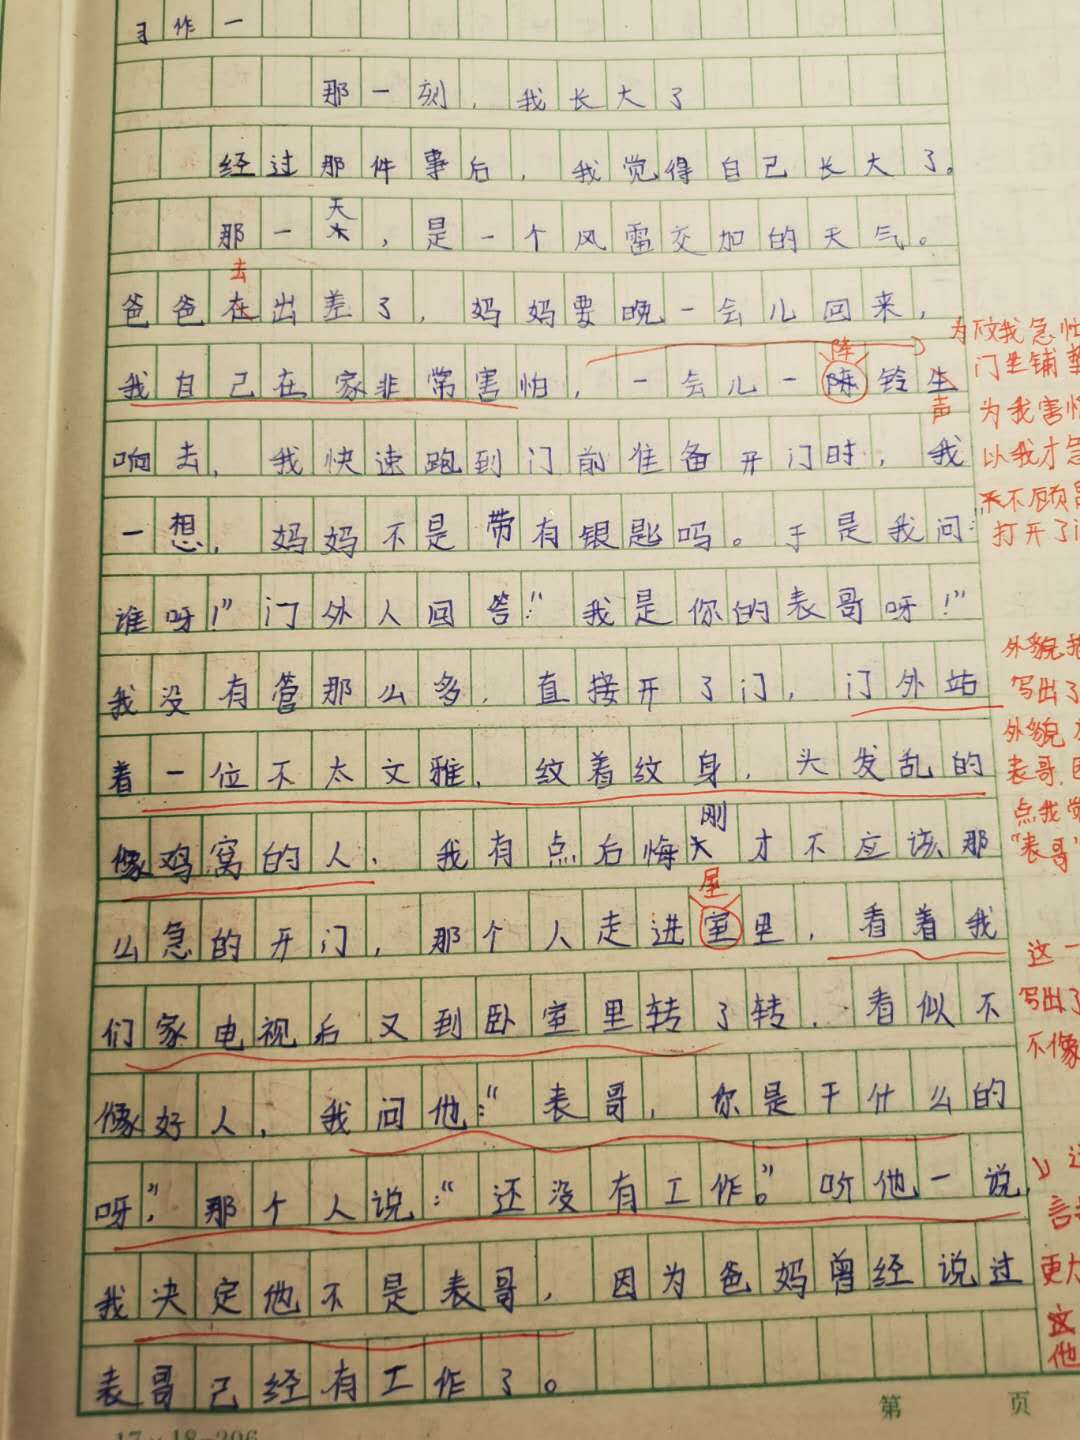 习作一
那一刻，我长大了
经过那件事后，我觉得自己长大了。
天
那一，是一个风雷交加的天气。
去
爸爸在出差了，妈妈要晚一会儿回来，
为下文我急忙
阵
门
我自己在家非常害怕，一会儿一陈铃生
声
为我害怕
响去，我快速跑到门前准备开门时，我
以我才急
一想，妈妈不是带有银匙吗。于是我问：
不顾
打开了门
谁呀！”门外人回答：“我是你的表哥呀！”
外貌描
我没有管那么多，直接开了门，门外站
写出了
着一位不太文雅，纹着纹身，头发乱的
外貌
表哥，
刚
点我觉
像鸡窝的人，我有点后悔才不应该那
“表哥”
屋
么急的开门，那个人走进室里，看着我
这一
们家电视后又到卧室里转了转，看似不
写出了
不像
像好人，我问他：“表哥，你是干什么的
呀，”那个人说：“还没有工作。”听他一说，
言
我决定他不是表哥，因为爸妈曾经说过
更
他
表哥已经有工作了。
第 页